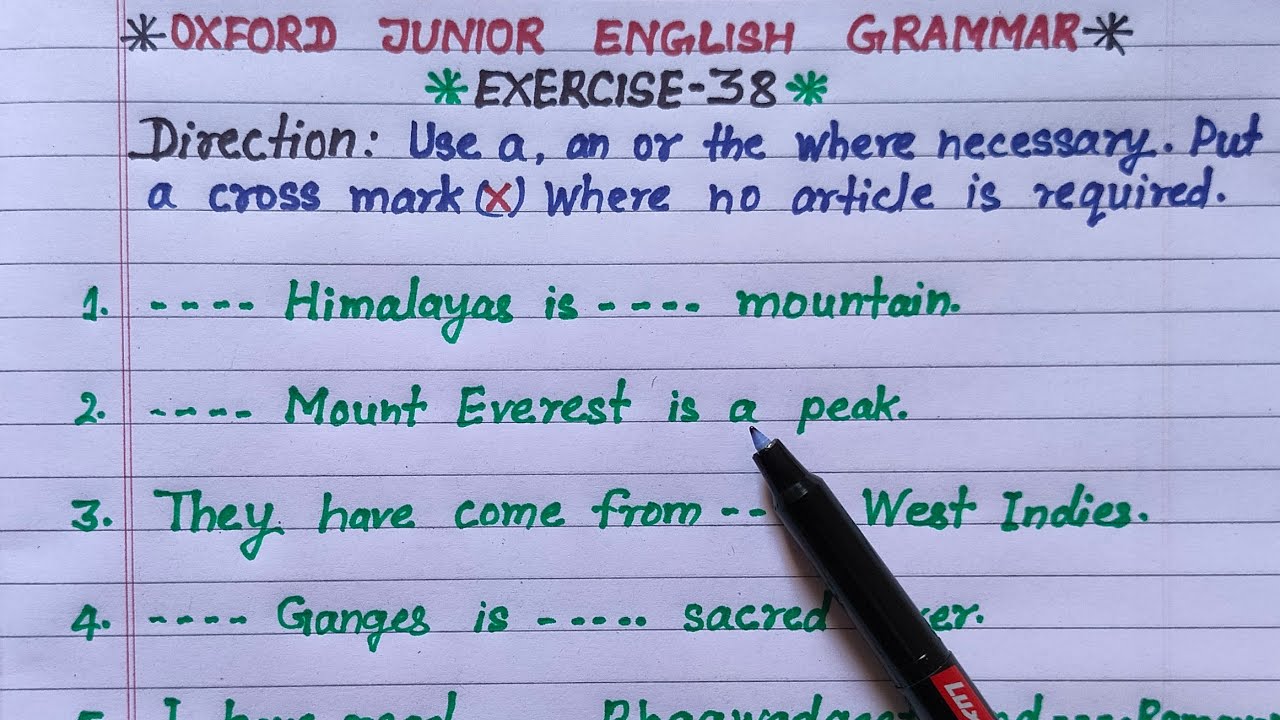 *OXFORD JUNIOR ENGLISH GRAMMAR*
*EXERCISE-38*
Direction: Use a, an or the where necessary. Put
a cross mark (X) where no article is required.
1. ---- Himalayas is ---- mountain.
2. ---- Mount Everest is a peak.
3. They have come from -- West Indies.
4. ---- Ganges is ----- sacred
5. I have read